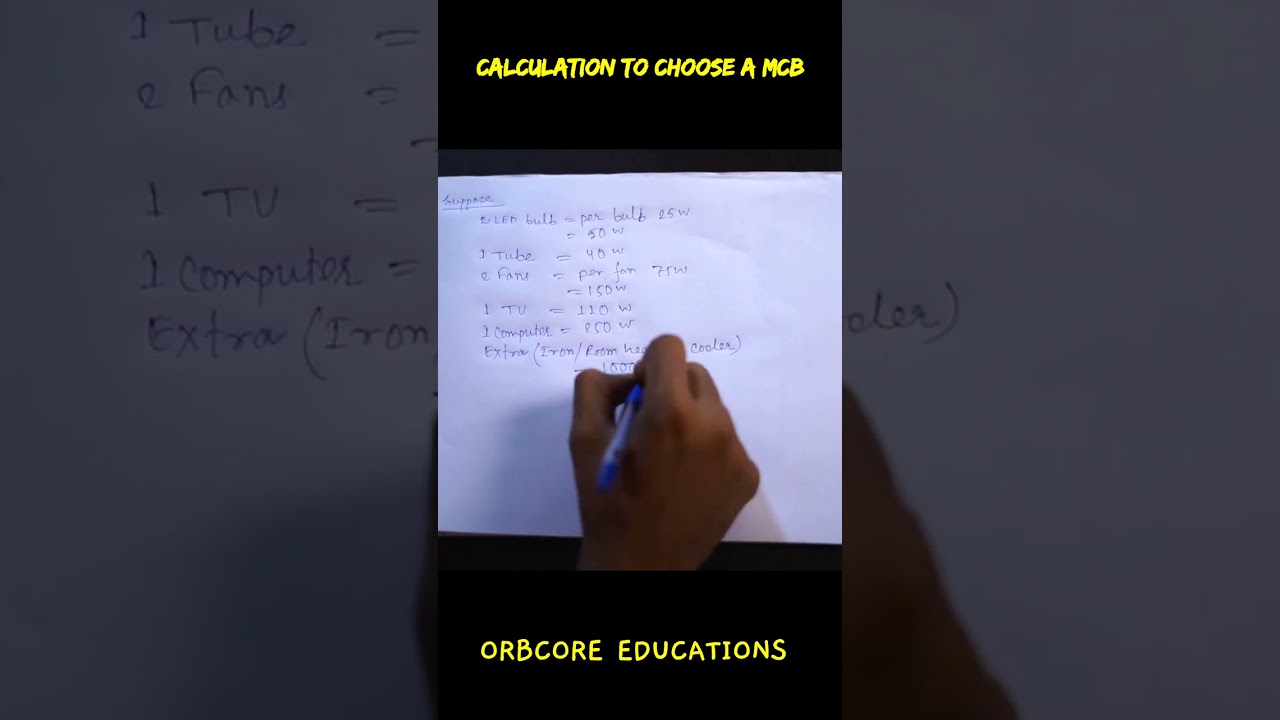 CALCULATION TO CHOOSE A MCB
Suppose
2 LED bulb = per bulb 25W
= 50 W
1 Tube = 40 W
2 Fans = per fan 75W
= 150 W
1 TV = 110 W
1 Computer = 250 W
Extra (Iron/Room cooler)
= 1000
ORBCORE EDUCATIONS
1 Tube =
2 Fans =
=
1 TV =
1 Computer =
Extra (Iron